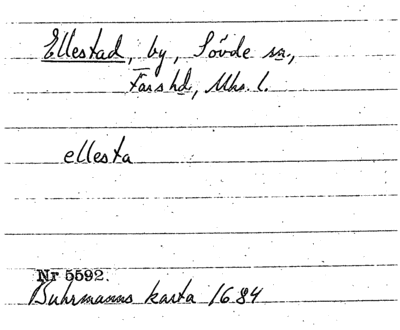 Ellestad, by, Sövde sn.,
Färs hd, Mhs. l.
ellesta
Nr 5592.
Buhrmanns karta 1684